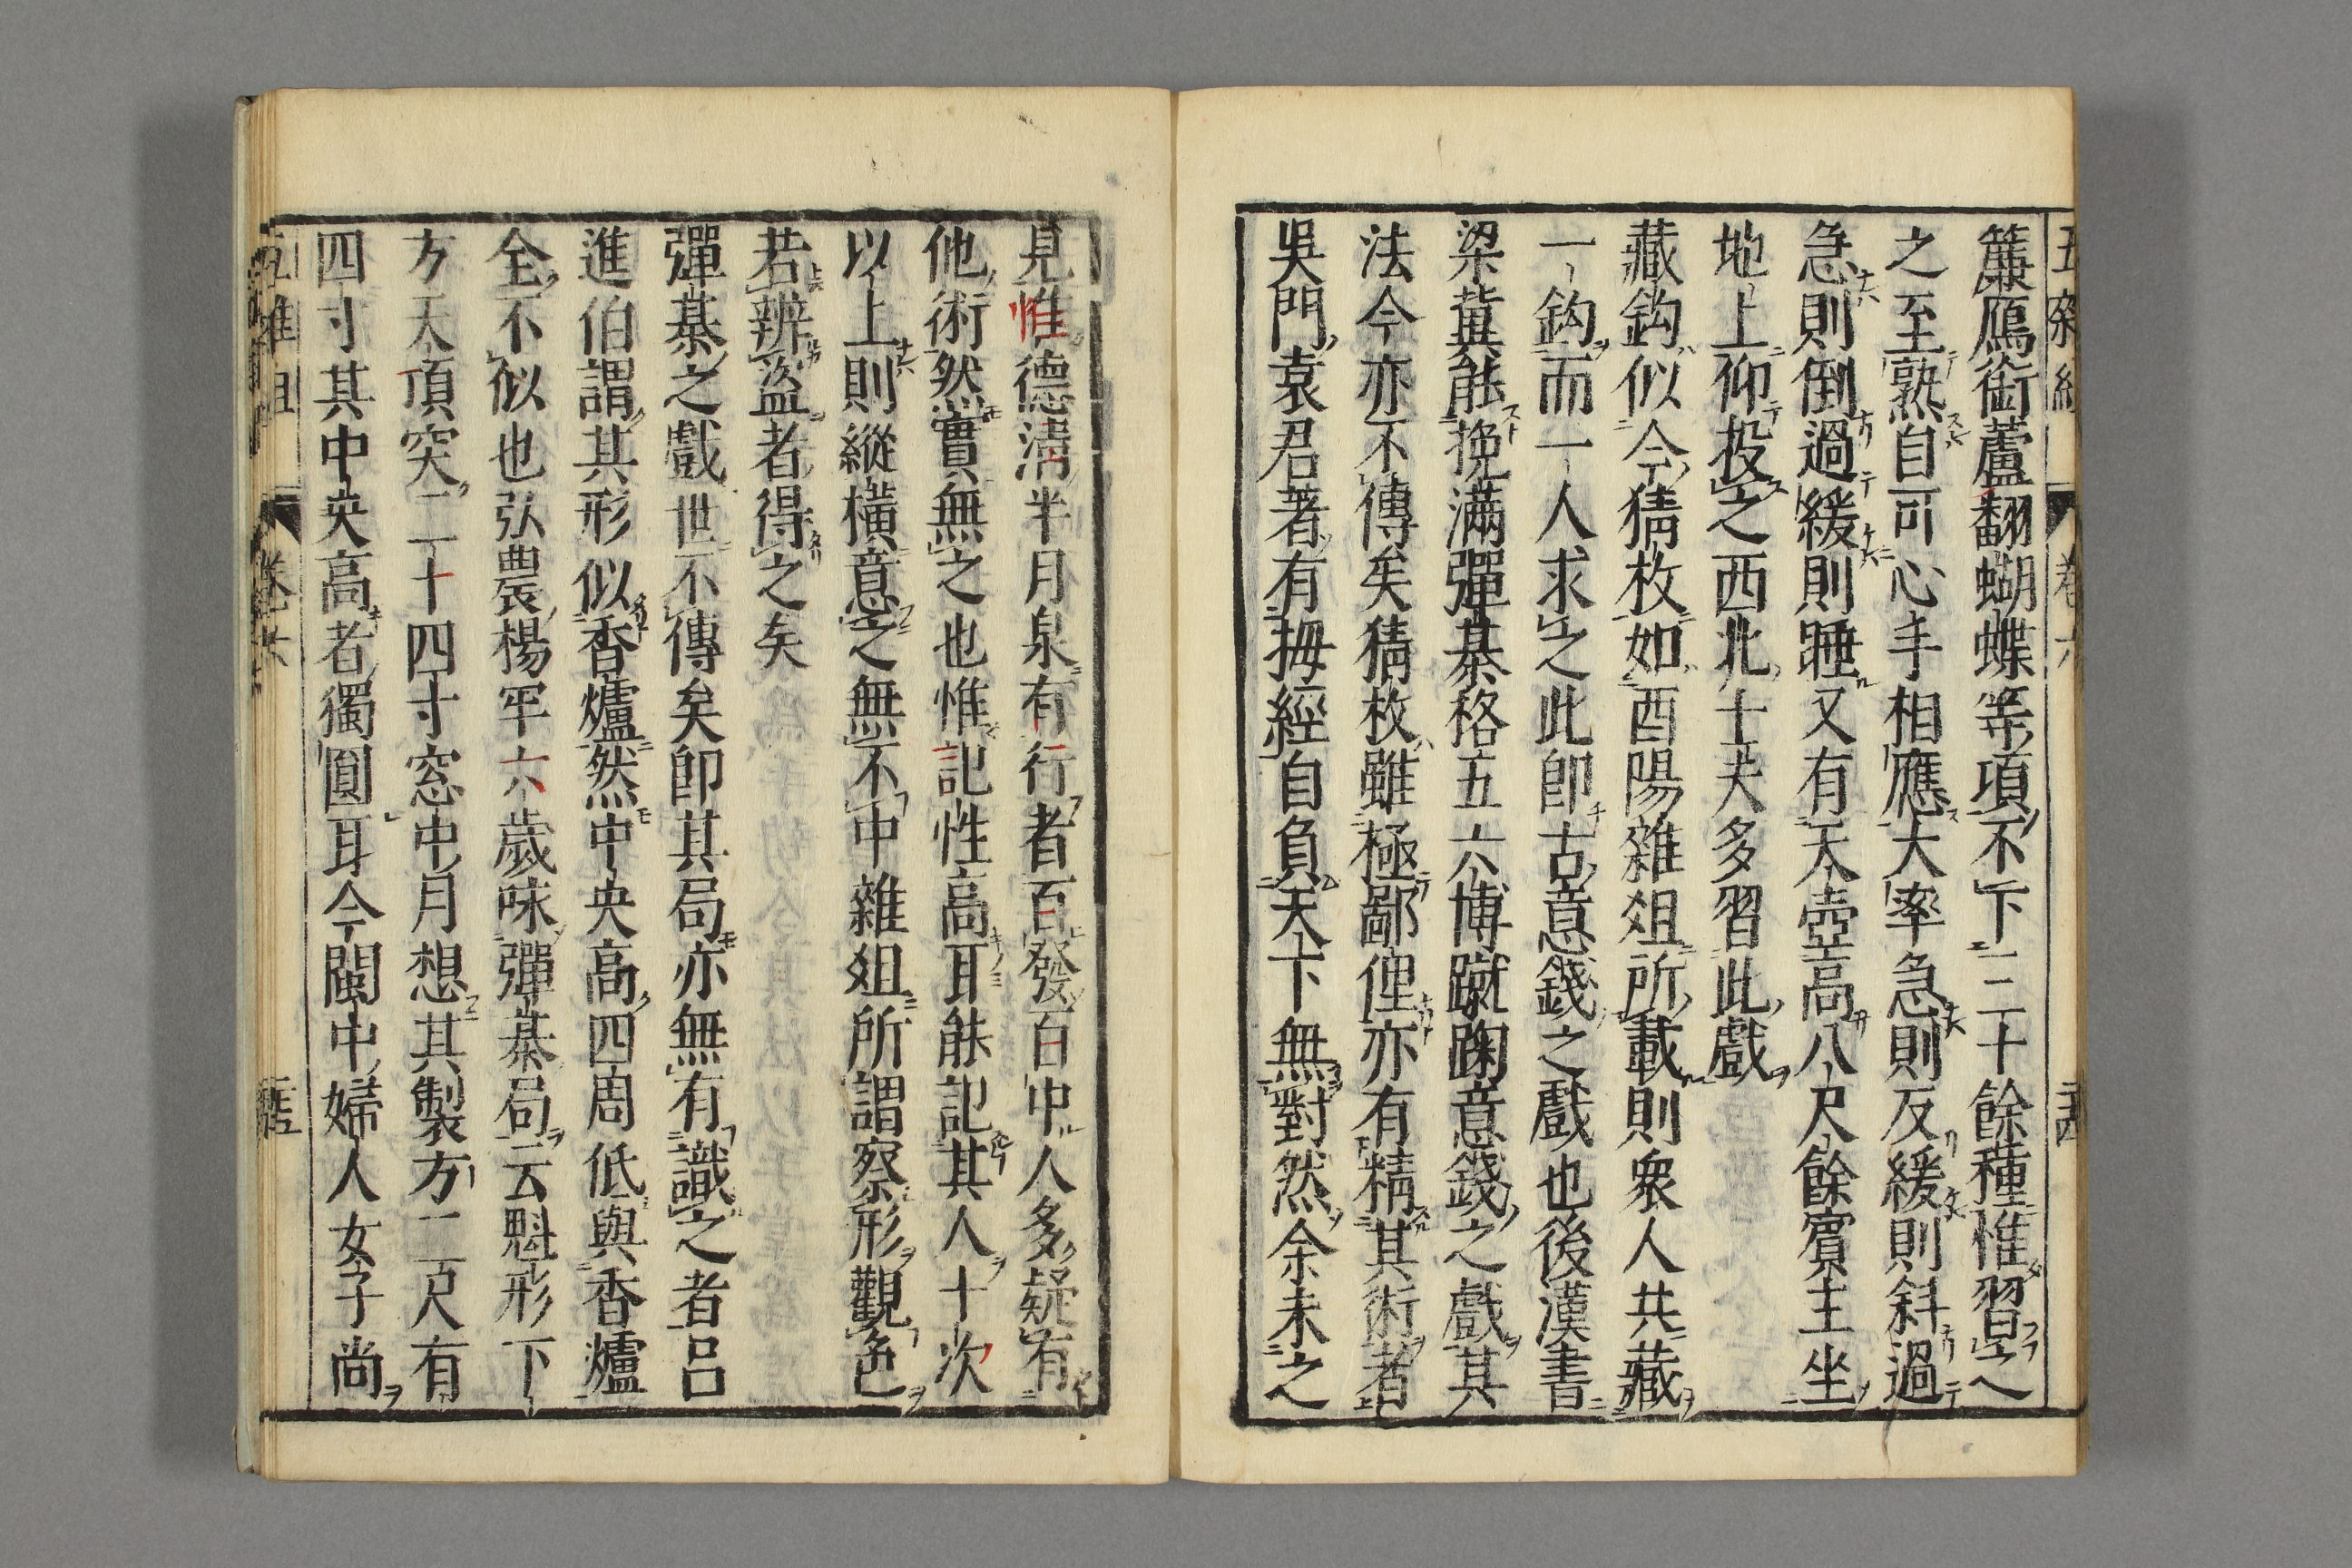 簾鴈銜蘆翻蝴蝶等項不下三十餘種惟習之
之至熟自可心手相應大率急則反緩則斜過
急則倒過緩則睡又有天壺高八尺餘賓主坐
地上仰投之西北士夫多習此戲
藏鈎似今猜枚如酉陽雜俎所載則衆人共藏
一鈎而一人求之此即古意錢之戲也後漢書
梁冀能挽滿彈棊格五六博蹴踘意錢之戲其
法今亦不傳矣猜枚雖極鄙俚亦有精其術者
吳門袁君著有拇經自負天下無對然余未之
見惟德清半月泉有行者百發百中人多疑有
他術然實無之也惟記性高耳能記其人十次
以上則縱橫意之無不中雜俎所謂察形觀色
若辨盜者得之矣
彈棊之戲世不傳矣即其局亦無有識之者呂
進伯謂其形似香爐然中央高四周低與香爐
全不似也弘農楊牢六歲咏彈棊局云魁形下
方天頂突二十四寸窓中月想其製方二尺有
四寸其中央高者獨圓耳今閩中婦人女子尚
五雜俎
卷六